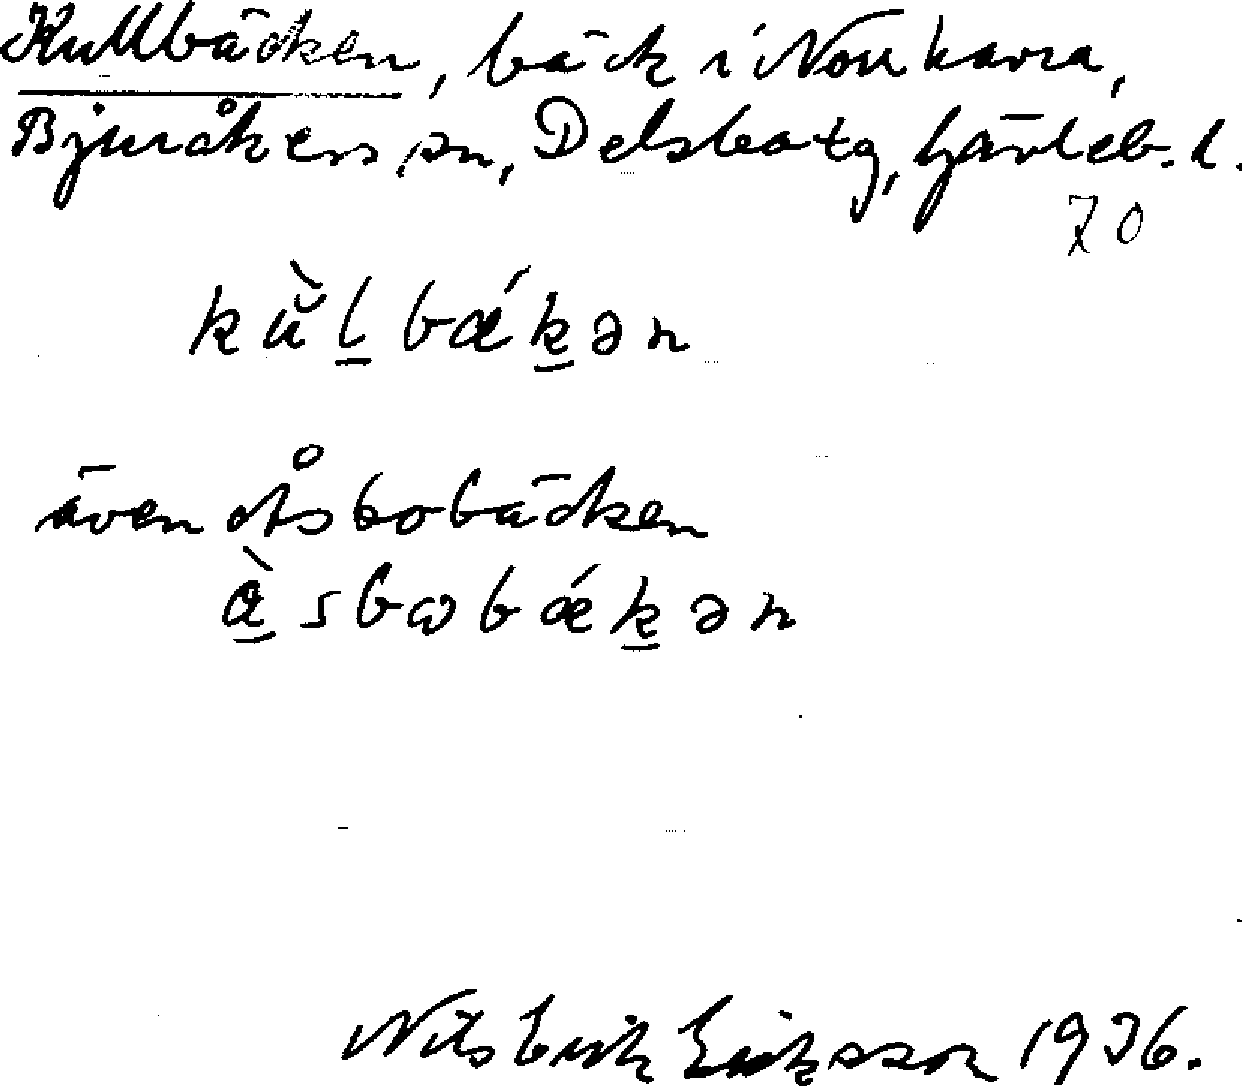 Kullbäcken, bäck i Norrhavra,
Bjuråkers sn, Delsbo tg, Gävleb. l.
70
kù̆l̠ bǽk̠ən
även Åsbobäcken
àsbɷbǽk̠ən
Nils Erik Eriksson 1936.